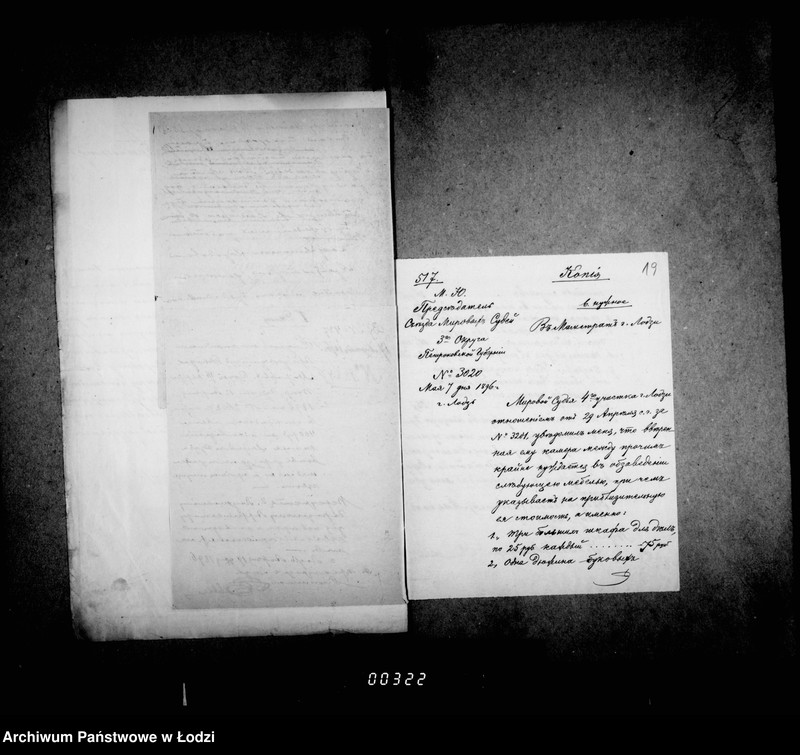 517.
Копія
19
М. Ю.
Предсѣдатель
Съѣзда Мировыхъ Судей
3го Округа
Петроковской Губерніи
№ 3020
Мая 7 дня 1896 г.
г. Лодзь
Въ Магистратъ г. Лодзи
Мировой Судья 4го участка г. Лодзи
отношеніемъ отъ 29 Апрѣля с. г. за
№ 3201, увѣдомилъ меня, что ввѣрен
ная ему камера между прочимъ
крайне нуждается въ обзаведеніи
слѣдующею мебелью, при чемъ
указываетъ на приблизительную
ея стоимость, а именно:
1., три большихъ шкафа для дѣлъ,
по 25 руб каждый ........ 75 руб
2., одна дюжина буковыхъ
00322
Archiwum Państwowe w Łodzi